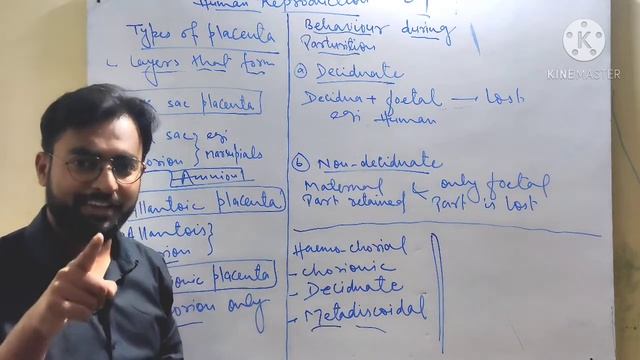 Human Reproduction
Types of placenta
Layers that form
sac placenta
sac } egi
orion } Marsupials
Amnion
llantoic placenta
Allantois }
rion
ionic placenta
orion only
Behaviour during
Parturition
(a) Deciduate
Decidua + foetal → Lost
egi Human
(b) Non-deciduate
Maternal Part retained < only foetal
Part is lost
Haemo-chorial
- Chorionic
- Deciduate
- Metadiscoidal
KINEMASTER